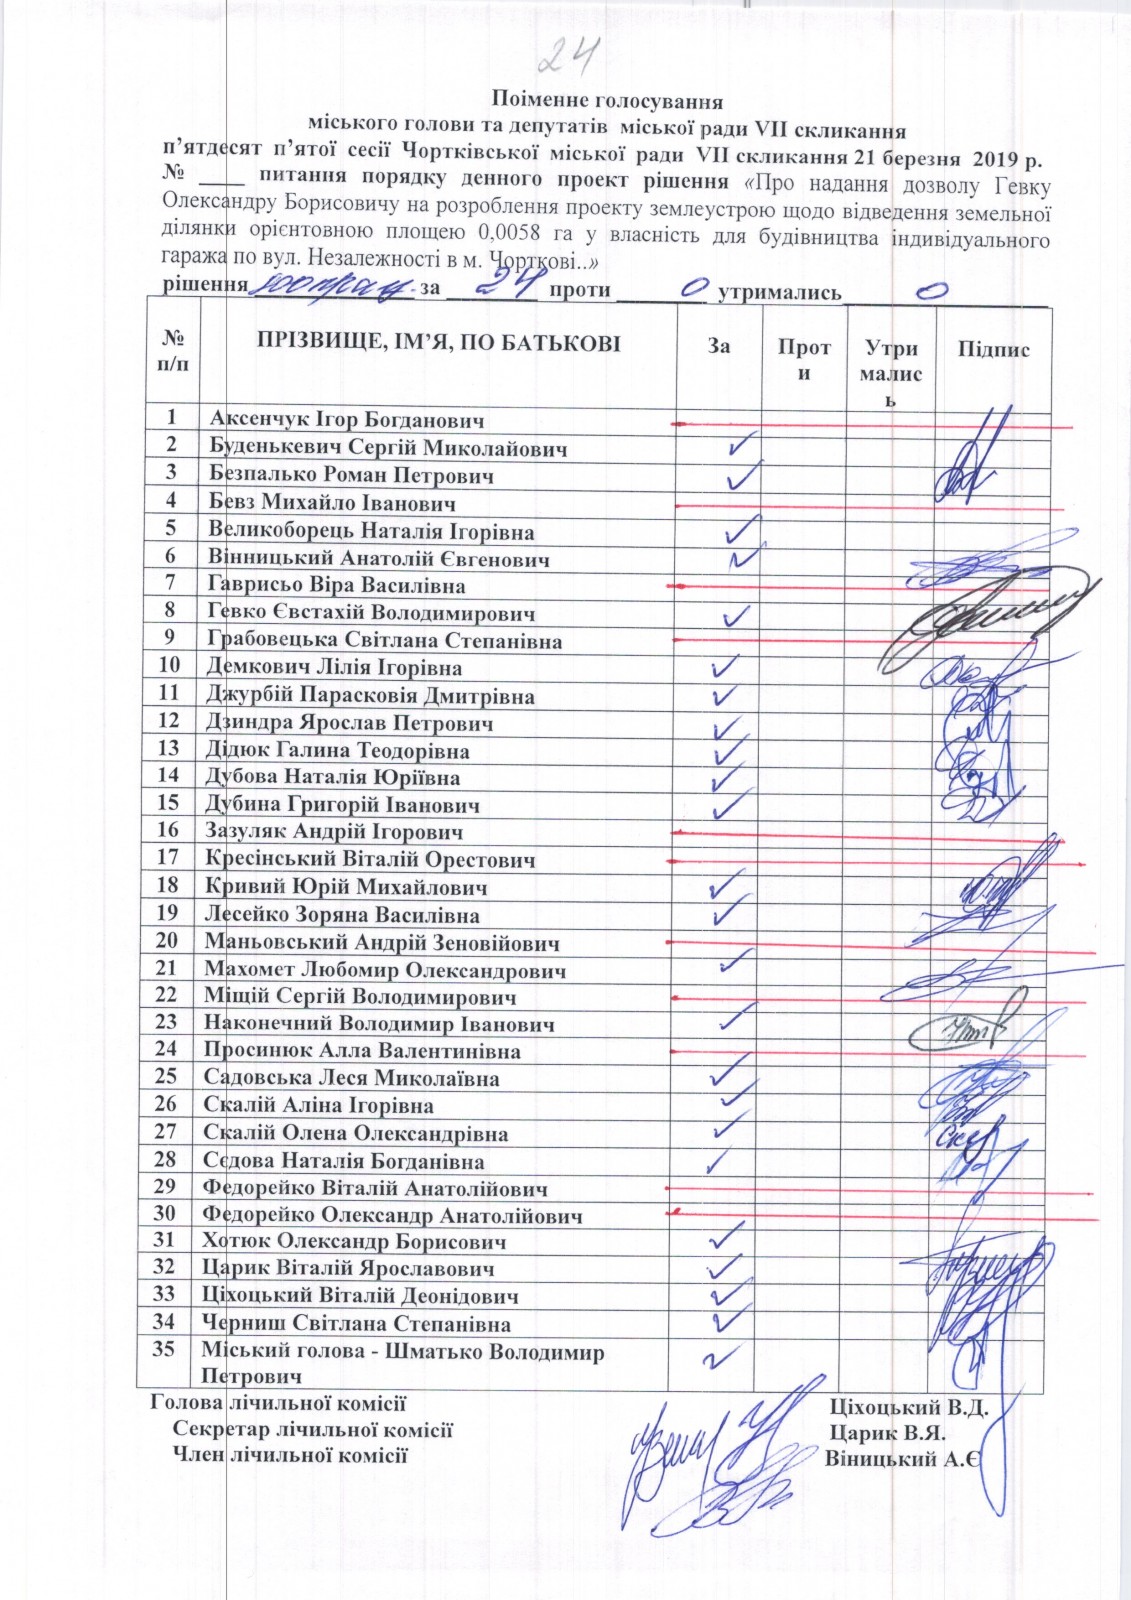 24
Поіменне голосування
міського голови та депутатів міської ради VII скликання
п’ятдесят п’ятої сесії Чортківської міської ради VII скликання 21 березня 2019 р.
№ ____ питання порядку денного проект рішення «Про надання дозволу Гевку
Олександру Борисовичу на розроблення проекту землеустрою щодо відведення земельної
ділянки орієнтовною площею 0,0058 га у власність для будівництва індивідуального
гаража по вул. Незалежності в м. Чорткові..»
рішення за 24 проти 0 утримались 0
№ п/п ПРІЗВИЩЕ, ІМ’Я, ПО БАТЬКОВІ За Проти Утрималисьь Підпис
1 Аксенчук Ігор Богданович
2 Буденькевич Сергій Миколайович ✓
3 Безпалько Роман Петрович ✓
4 Бевз Михайло Іванович
5 Великоборець Наталія Ігорівна ✓
6 Вінницький Анатолій Євгенович ✓
7 Гаврисьо Віра Василівна
8 Гевко Євстахій Володимирович ✓
9 Грабовецька Світлана Степанівна
10 Демкович Лілія Ігорівна ✓
11 Джурбій Парасковія Дмитрівна ✓
12 Дзиндра Ярослав Петрович ✓
13 Дідюк Галина Теодорівна ✓
14 Дубова Наталія Юріївна ✓
15 Дубина Григорій Іванович ✓
16 Зазуляк Андрій Ігорович
17 Кресінський Віталій Орестович
18 Кривий Юрій Михайлович ✓
19 Лесейко Зоряна Василівна ✓
20 Маньовський Андрій Зеновійович
21 Махомет Любомир Олександрович ✓
22 Міщій Сергій Володимирович
23 Наконечний Володимир Іванович ✓
24 Просинюк Алла Валентинівна
25 Садовська Леся Миколаївна ✓
26 Скалій Аліна Ігорівна ✓
27 Скалій Олена Олександрівна ✓
28 Сєдова Наталія Богданівна ✓
29 Федорейко Віталій Анатолійович
30 Федорейко Олександр Анатолійович
31 Хотюк Олександр Борисович ✓
32 Царик Віталій Ярославович ✓
33 Ціхоцький Віталій Деонідович ✓
34 Черниш Світлана Степанівна ✓
35 Міський голова - Шматько Володимир ✓
Петрович
Голова лічильної комісії Ціхоцький В.Д.
Секретар лічильної комісії Царик В.Я.
Член лічильної комісії Віницький А.Є